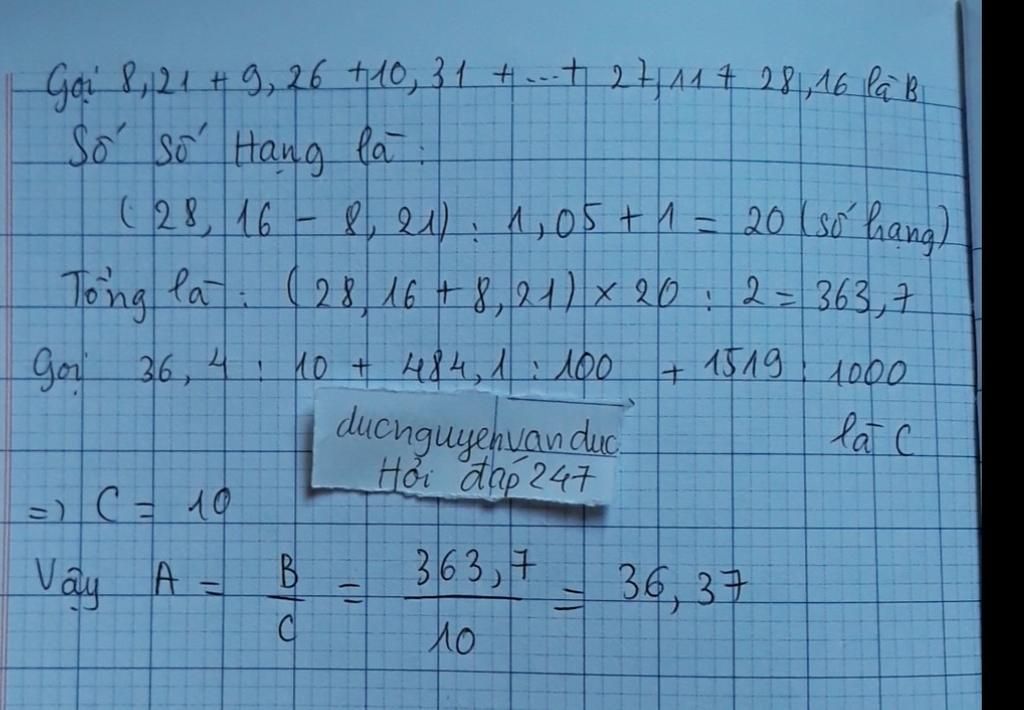 Gọi 8,21 + 9,26 + 10,31 + ... + 27,11 + 28,16 là B
Số số Hạng là :
(28,16 - 8,21) : 1,05 + 1 = 20 (số hạng)
Tổng là : (28,16 + 8,21) × 20 : 2 = 363,7
Gọi 36,4 : 10 + 484,1 : 100 + 1519 : 1000
là C
ducnguyenvanduc
Hỏi đáp 247
=> C = 10
Vậy A = B/C = 363,7/10 = 36,37